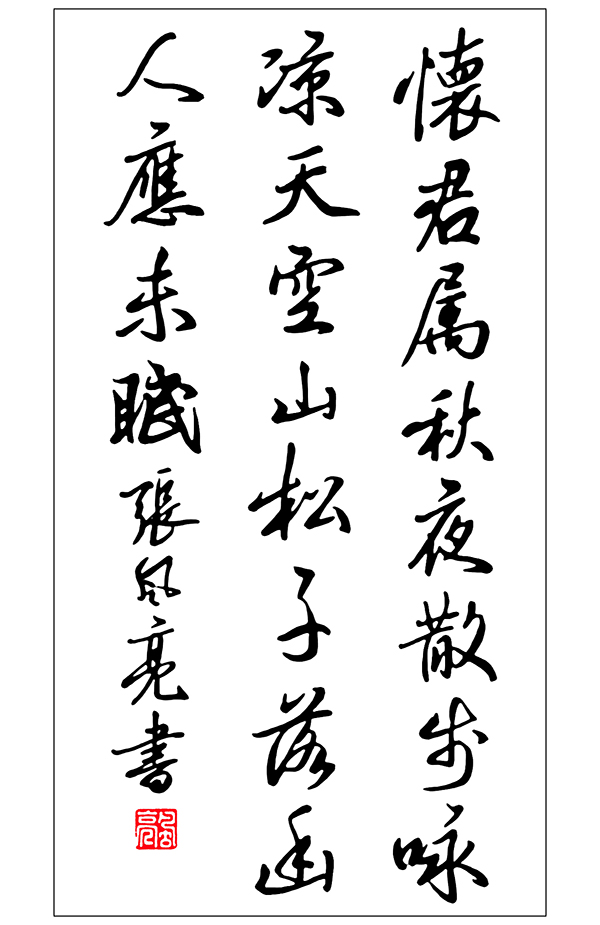 懷君属秋夜散步咏
凉天空山松子落幽
人應未眠張风亮書